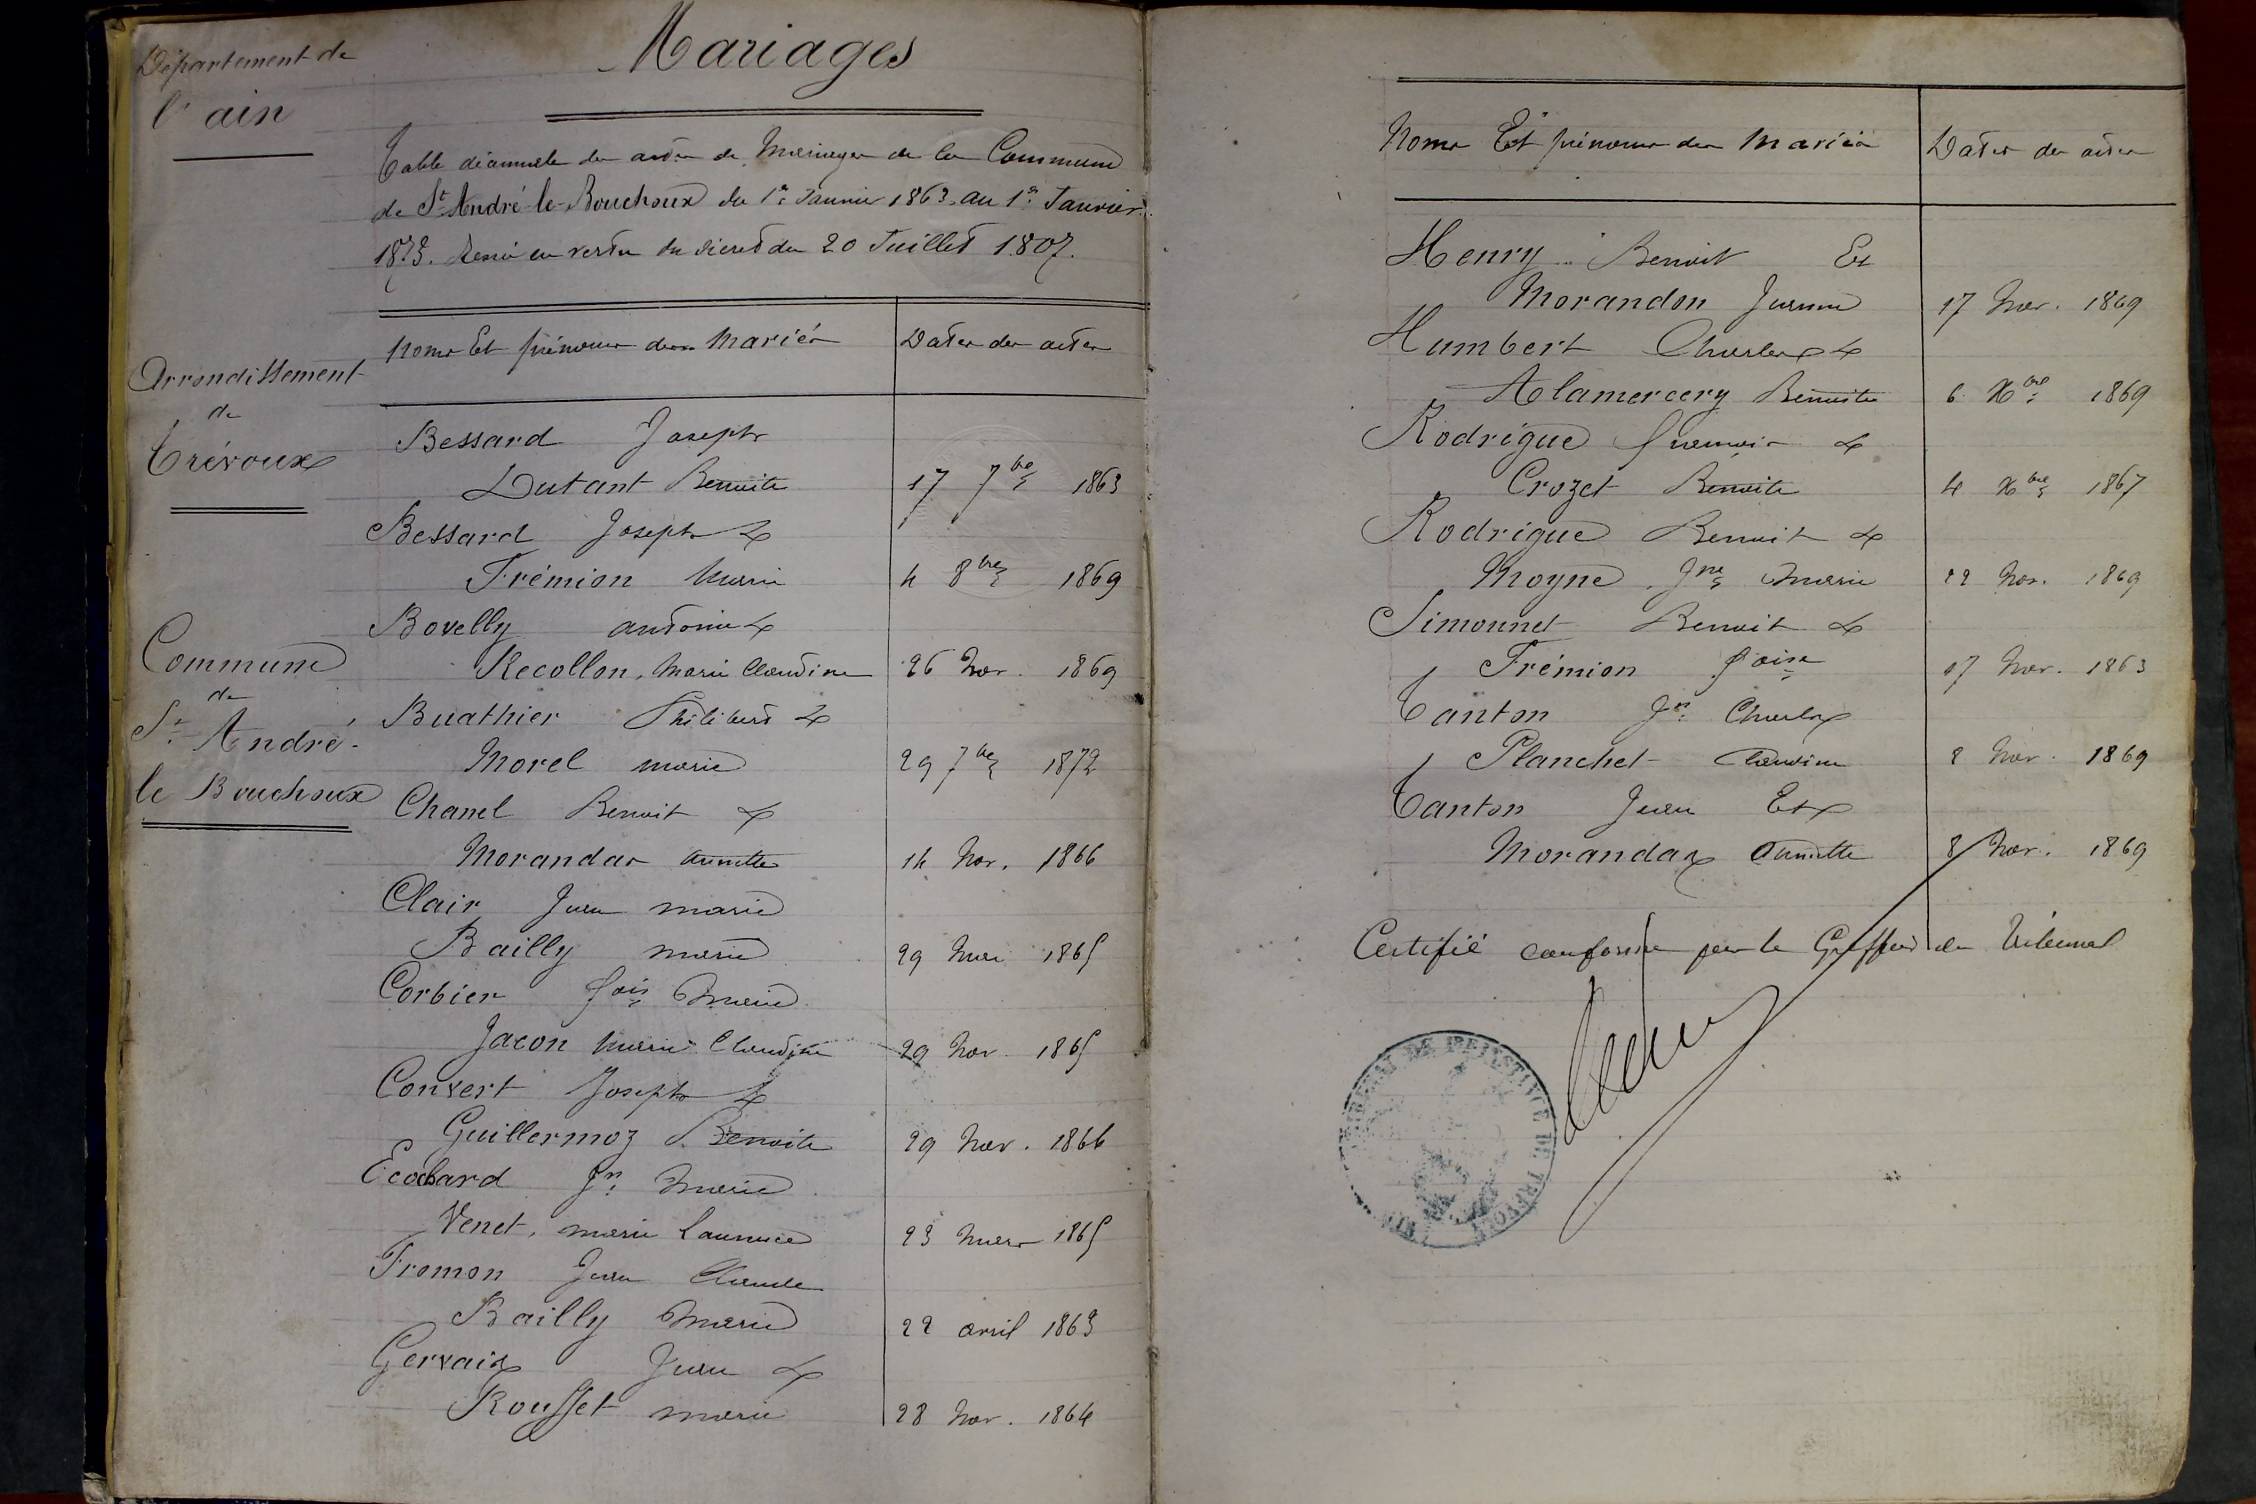 Département de
l'ain
Arrondissement
de
Trévoux
Commune
de
St André-
le Bouchoux
Mariages
Table décennale des actes de Mariages de la Commune
de St André-le-Bouchoux du 1er Janvier 1863 au 1er Janvier
1873. dressé en vertu du décret du 20 Juillet 1807.
Noms Et prénoms des Mariés Dates des actes
Bessard Joseph
Dutant Benoite 17 7bre 1863
Bessard Joseph &
Frémion Marie 4 8bre 1869
Bovelly antoine &
Recollon, Marie Claudine 26 Nov. 1869
Buathier Philibert &
Morel marie 29 7bre 1872
Chanel Benoit &
Morandas annette 14 Nov. 1866
Clair Jean marie
Bailly marie 29 1865
Corbier fois Marie
Jacon Marie Claudine 29 Nov. 1865
Convert Joseph &
Guillermoz Benoite 29 Nov. 1866
Ecochard Jn Marie
Venet, marie Laurence 23 Mars 1865
Fromon Jean Claude
Bailly Marie 22 avril 1863
Gervais Jean &
Rousset marie 28 Nov. 1864
Noms Et prénoms des Mariés Dates des actes
Henry Benoit Et
Morandon Jeanne 17 Nov. 1869
Humbert Charles &
Alamercery Benoite 6 Xbre 1869
Rodrigue françois &
Crozet Benoite 4 Xbre 1867
Rodrigue Benoit &
Moyne Jne Marie 22 Nov. 1869
Simonnet Benoit &
Frémion foise 17 Nov. 1863
Tanton Jn Charles
Planchet Claudine 8 Nov. 1869
Tanton Jean Et
Morandas Annette 8 Nov. 1869
Certifié conforme par le Greffier du Tribunal
TRIBUNAL DE 1ERE INSTANCE DE TREVOUX